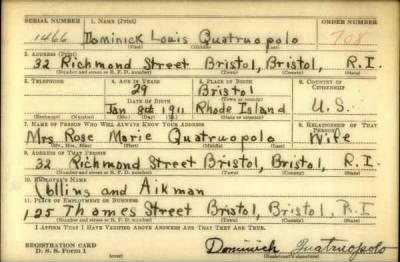 SERIAL NUMBER 1. NAME (Print) ORDER NUMBER
1466 Dominick Louis Quatruopolo 708
(First) (Middle) (Last)
2. ADDRESS (Print)
32 Richmond Street Bristol, Bristol, R.I.
(Number and street or R. F. D. number) (Town) (County) (State)
3. TELEPHONE 4. AGE IN YEARS 5. PLACE OF BIRTH 6. COUNTRY OF CITIZENSHIP
29 Bristol
DATE OF BIRTH (Town or county)
Jan 9th 1911 Rhode Island U.S.
(Exchange) (Number) (Mo.) (Day) (Yr.) (State or country)
7. NAME OF PERSON WHO WILL ALWAYS KNOW YOUR ADDRESS 8. RELATIONSHIP OF THAT PERSON
Mrs. Rose Marie Quatruopolo Wife
(Mr., Mrs., Miss) (First) (Middle) (Last)
9. ADDRESS OF THAT PERSON
32 Richmond Street Bristol, Bristol, R.I.
(Number and street or R. F. D. number) (Town) (County) (State)
10. EMPLOYER'S NAME
Collins and Aikman
11. PLACE OF EMPLOYMENT OR BUSINESS
125 Thames Street Bristol, Bristol, R.I
(Number and street or R. F. D. number) (Town) (County) (State)
I AFFIRM THAT I HAVE VERIFIED ABOVE ANSWERS AND THAT THEY ARE TRUE.
REGISTRATION CARD
D. S. S. Form 1 (over) Dominick Quatruopolo
(Registrant's signature)